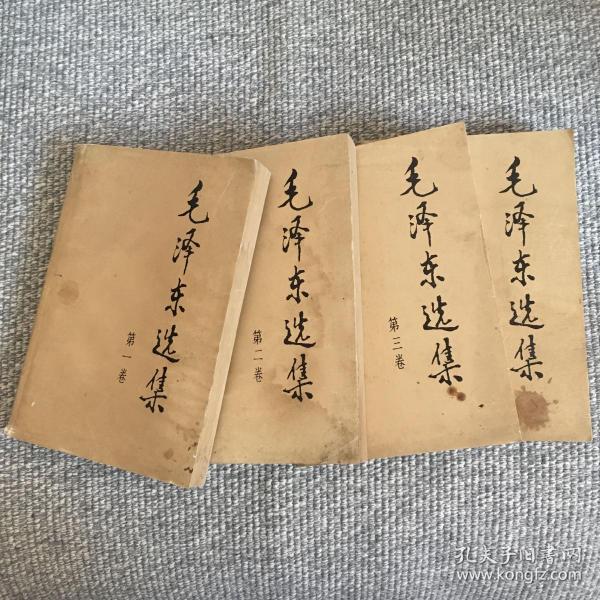 毛泽东选集
第一卷
毛泽东选集
第二卷
毛泽东选集
第三卷
毛泽东选集
孔夫子旧书网
www.kongfz.com